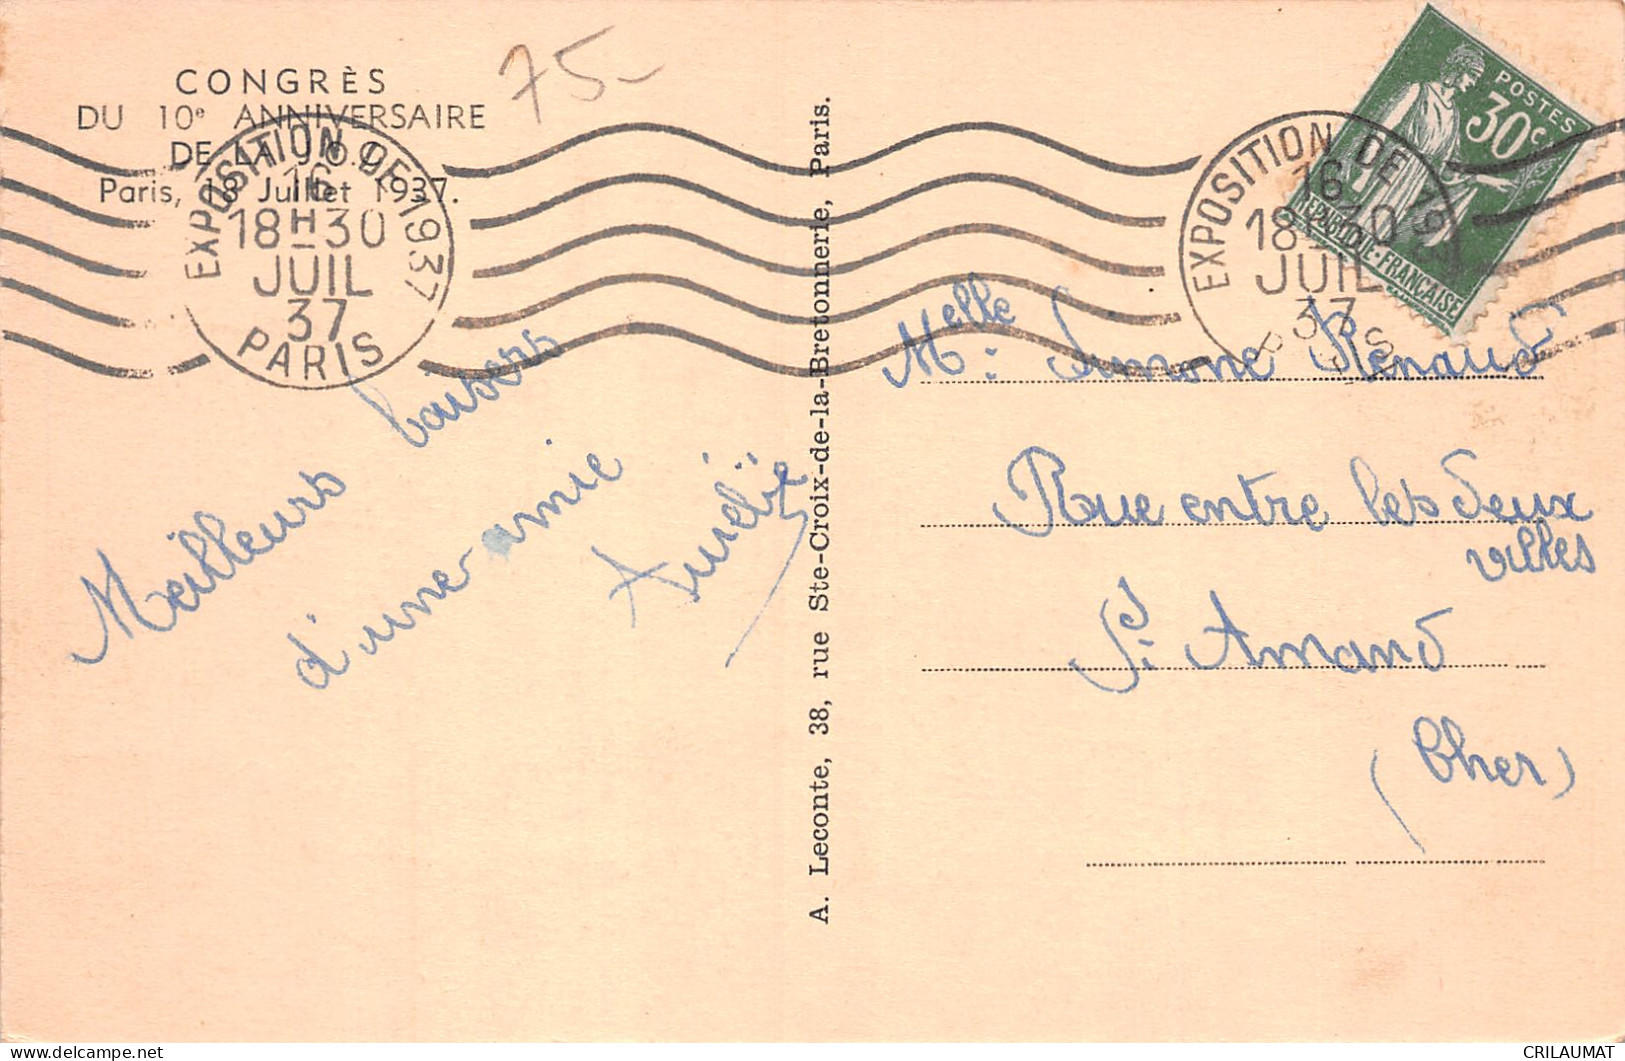 CONGRÈS
DU 10e ANNIVERSAIRE
DE LA J.O.C.
Paris, 18 Juillet 1937.
75-
EXPOSITION DE 1937
16
18H30
JUIL
37
PARIS
Meilleurs baisers
d'une amie
A. Leconte, 38, rue Ste-Croix-de-la-Bretonnerie, Paris.
EXPOSITION DE 19
16
18 30
JUIL
37
POSTES
30c
REPUBLIQUE·FRANÇAISE
Melle: Simone Renaud
Rue entre les deux
villes
St Amand
(Cher)
CRILAUMAT